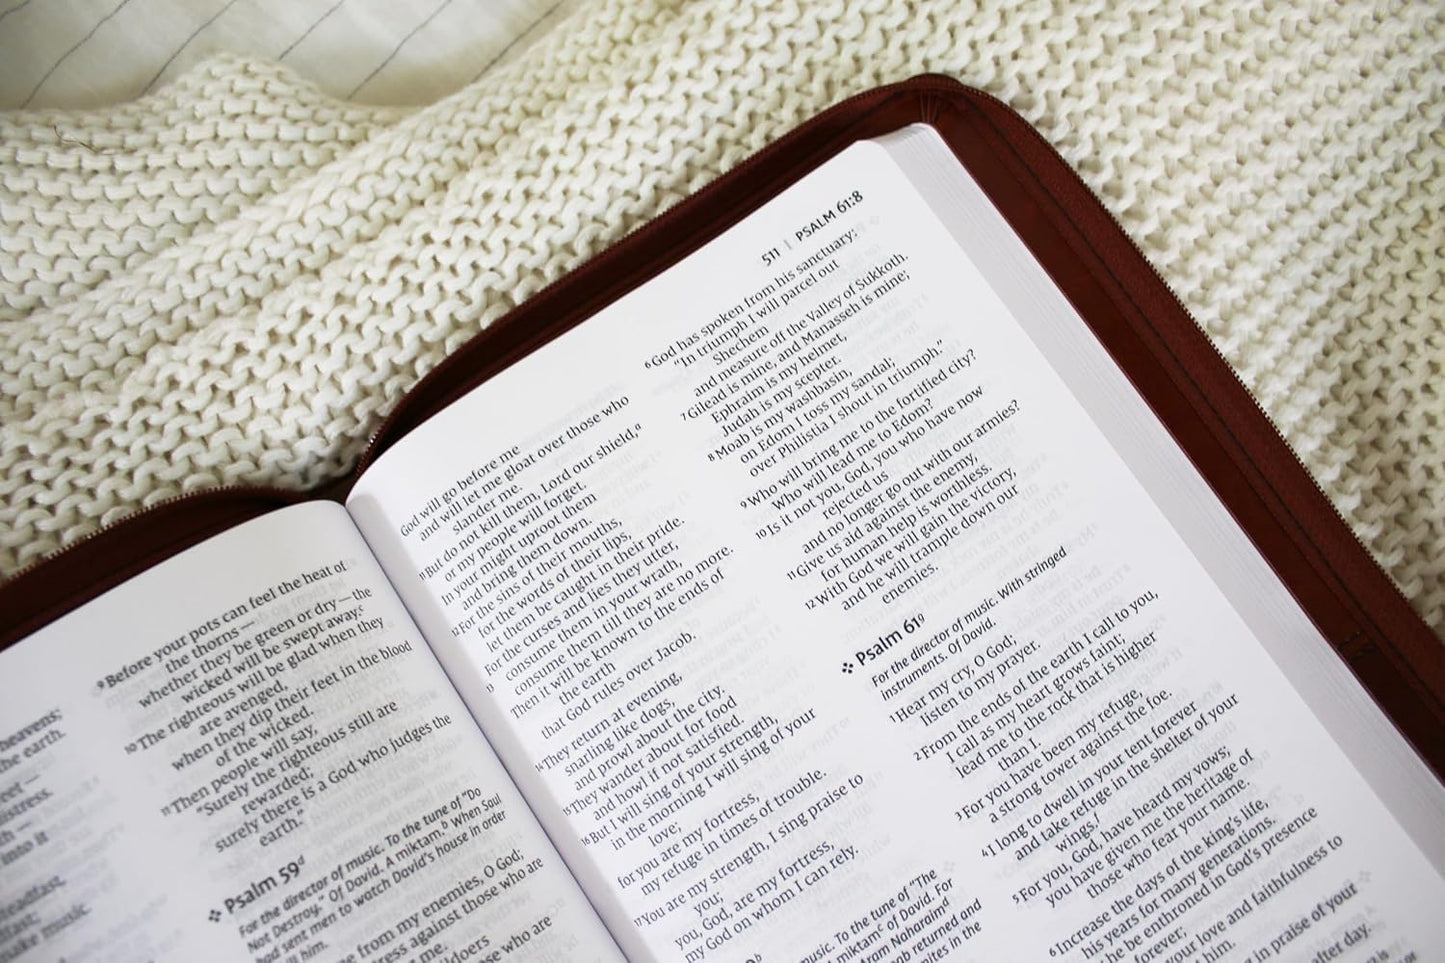 heavens;
the earth.
istress.
into it
9 Before your pots can feel the heat of
the thorns —
whether they be green or dry — the
wicked will be swept away.c
10 The righteous will be glad when they
are avenged,
when they dip their feet in the blood
of the wicked.
11 Then people will say,
“Surely the righteous still are
rewarded;
surely there is a God who judges the
earth.”
Psalm 59d
For the director of music. To the tune of “Do
Not Destroy.” Of David. A miktam.b When Saul
had sent men to watch David’s house in order
him.
me from my enemies, O God;
against those who are
me.
who are
511 | PSALM 61:8
God will go before me
and will let me gloat over those who
slander me.
11 But do not kill them, Lord our shield,a
or my people will forget.
In your might uproot them
and bring them down.
12 For the sins of their mouths,
for the words of their lips,
let them be caught in their pride.
For the curses and lies they utter,
13 consume them in your wrath,
consume them till they are no more.
Then it will be known to the ends of
the earth
that God rules over Jacob.
14 They return at evening,
snarling like dogs,
and prowl about the city.
15 They wander about for food
and howl if not satisfied.
16 But I will sing of your strength,
in the morning I will sing of your
love;
for you are my fortress,
my refuge in times of trouble.
17 You are my strength, I sing praise to
you;
you, God, are my fortress,
my God on whom I can rely.
music. To the tune of “The
miktamc of David. For
Aram Naharaimd
returned and
in the
6 God has spoken from his sanctuary:
“In triumph I will parcel out
Shechem
and measure off the Valley of Sukkoth.
7 Gilead is mine, and Manasseh is mine;
Ephraim is my helmet,
Judah is my scepter.
8 Moab is my washbasin,
on Edom I toss my sandal;
over Philistia I shout in triumph.”
9 Who will bring me to the fortified city?
Who will lead me to Edom?
10 Is it not you, God, you who have now
rejected us
and no longer go out with our armies?
11 Give us aid against the enemy,
for human help is worthless.
12 With God we will gain the victory,
and he will trample down our
enemies.
Psalm 61g
For the director of music. With stringed
instruments. Of David.
1 Hear my cry, O God;
listen to my prayer.
2 From the ends of the earth I call to you,
I call as my heart grows faint;
lead me to the rock that is higher
than I.
3 For you have been my refuge,
a strong tower against the foe.
4 I long to dwell in your tent forever
and take refuge in the shelter of your
wings.f
5 For you, God, have heard my vows;
you have given me the heritage of
those who fear your name.
6 Increase the days of the king’s life,
his years for many generations.
he be enthroned in God’s presence
forever;
your love and faithfulness to
him.
in praise of your
after day.